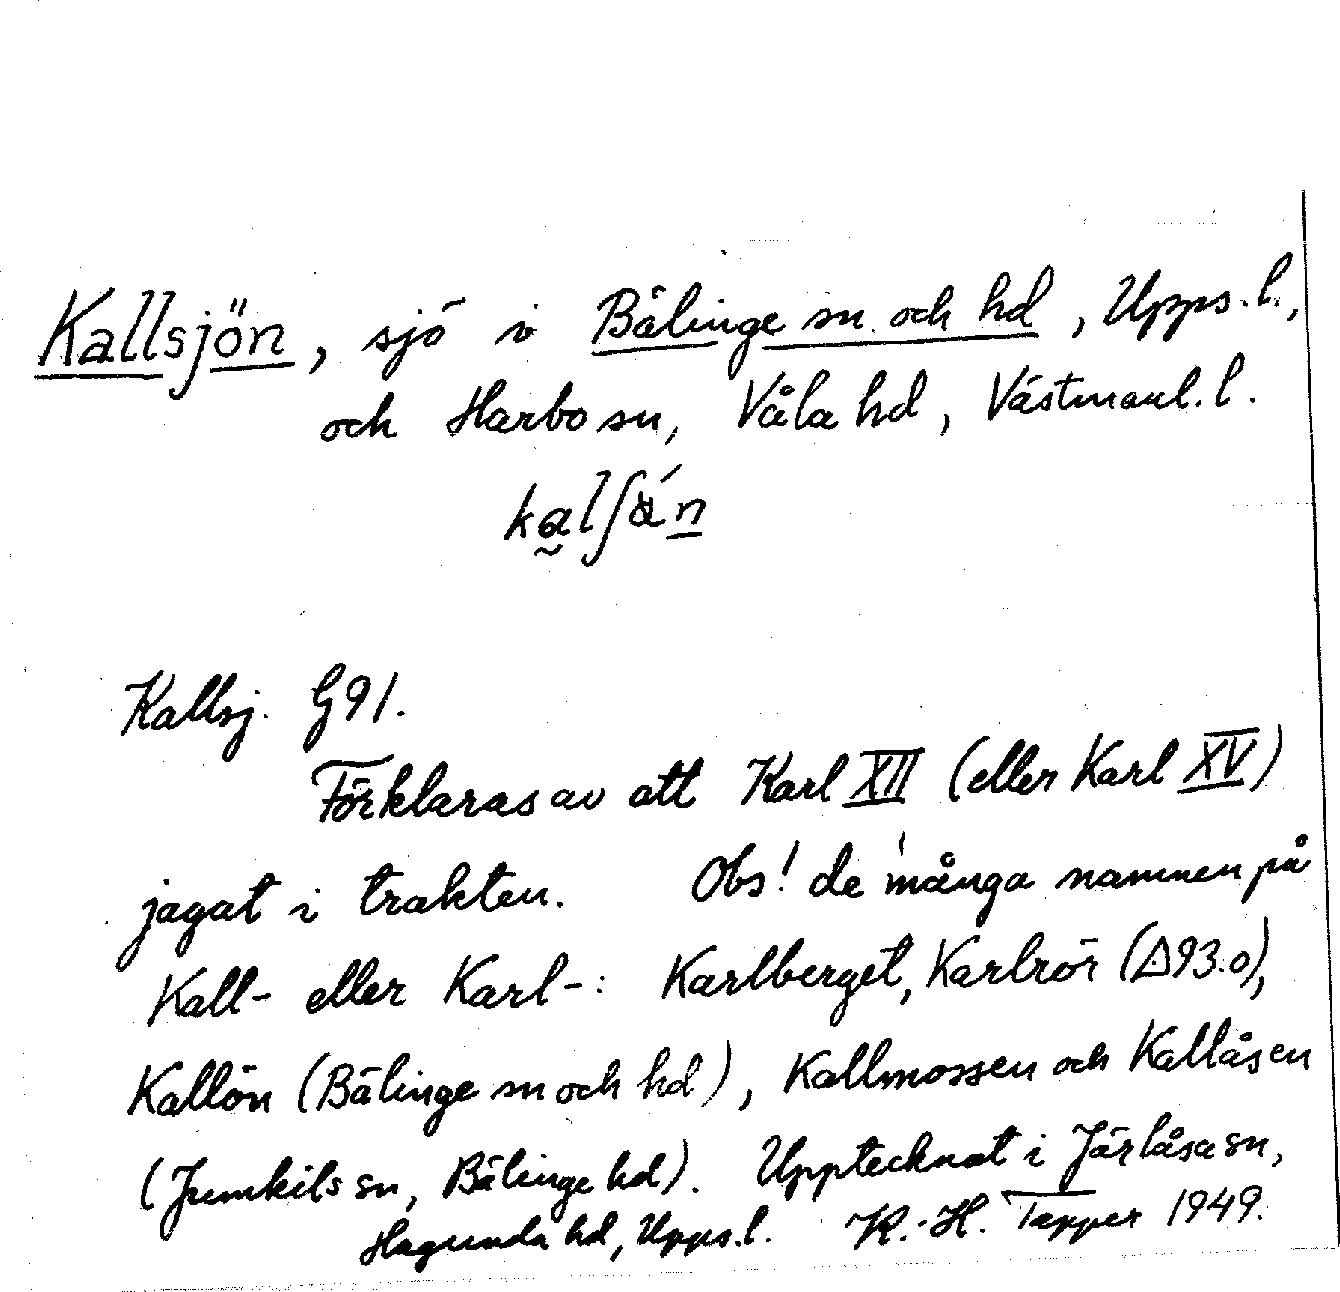 Kallsjön, sjö i Bälinge sn och hd, Upps. l.,
och Harbo sn, Våla hd, Västmanl. l.
Kallsj. G91.
Förklaras av att Karl XII (eller Karl XV)
jagat i trakten. Obs! de många namnen på
Kall- eller Karl-: Karlberget, Karlrör (Δ93.0),
Kallön (Bälinge sn och hd), Kallmossen och Kallåsen
(Jumkils sn, Bälinge hd). Upptecknat i Järlåsa sn,
Hagunda hd, Upps. l. K.-H. Tapper 1949.